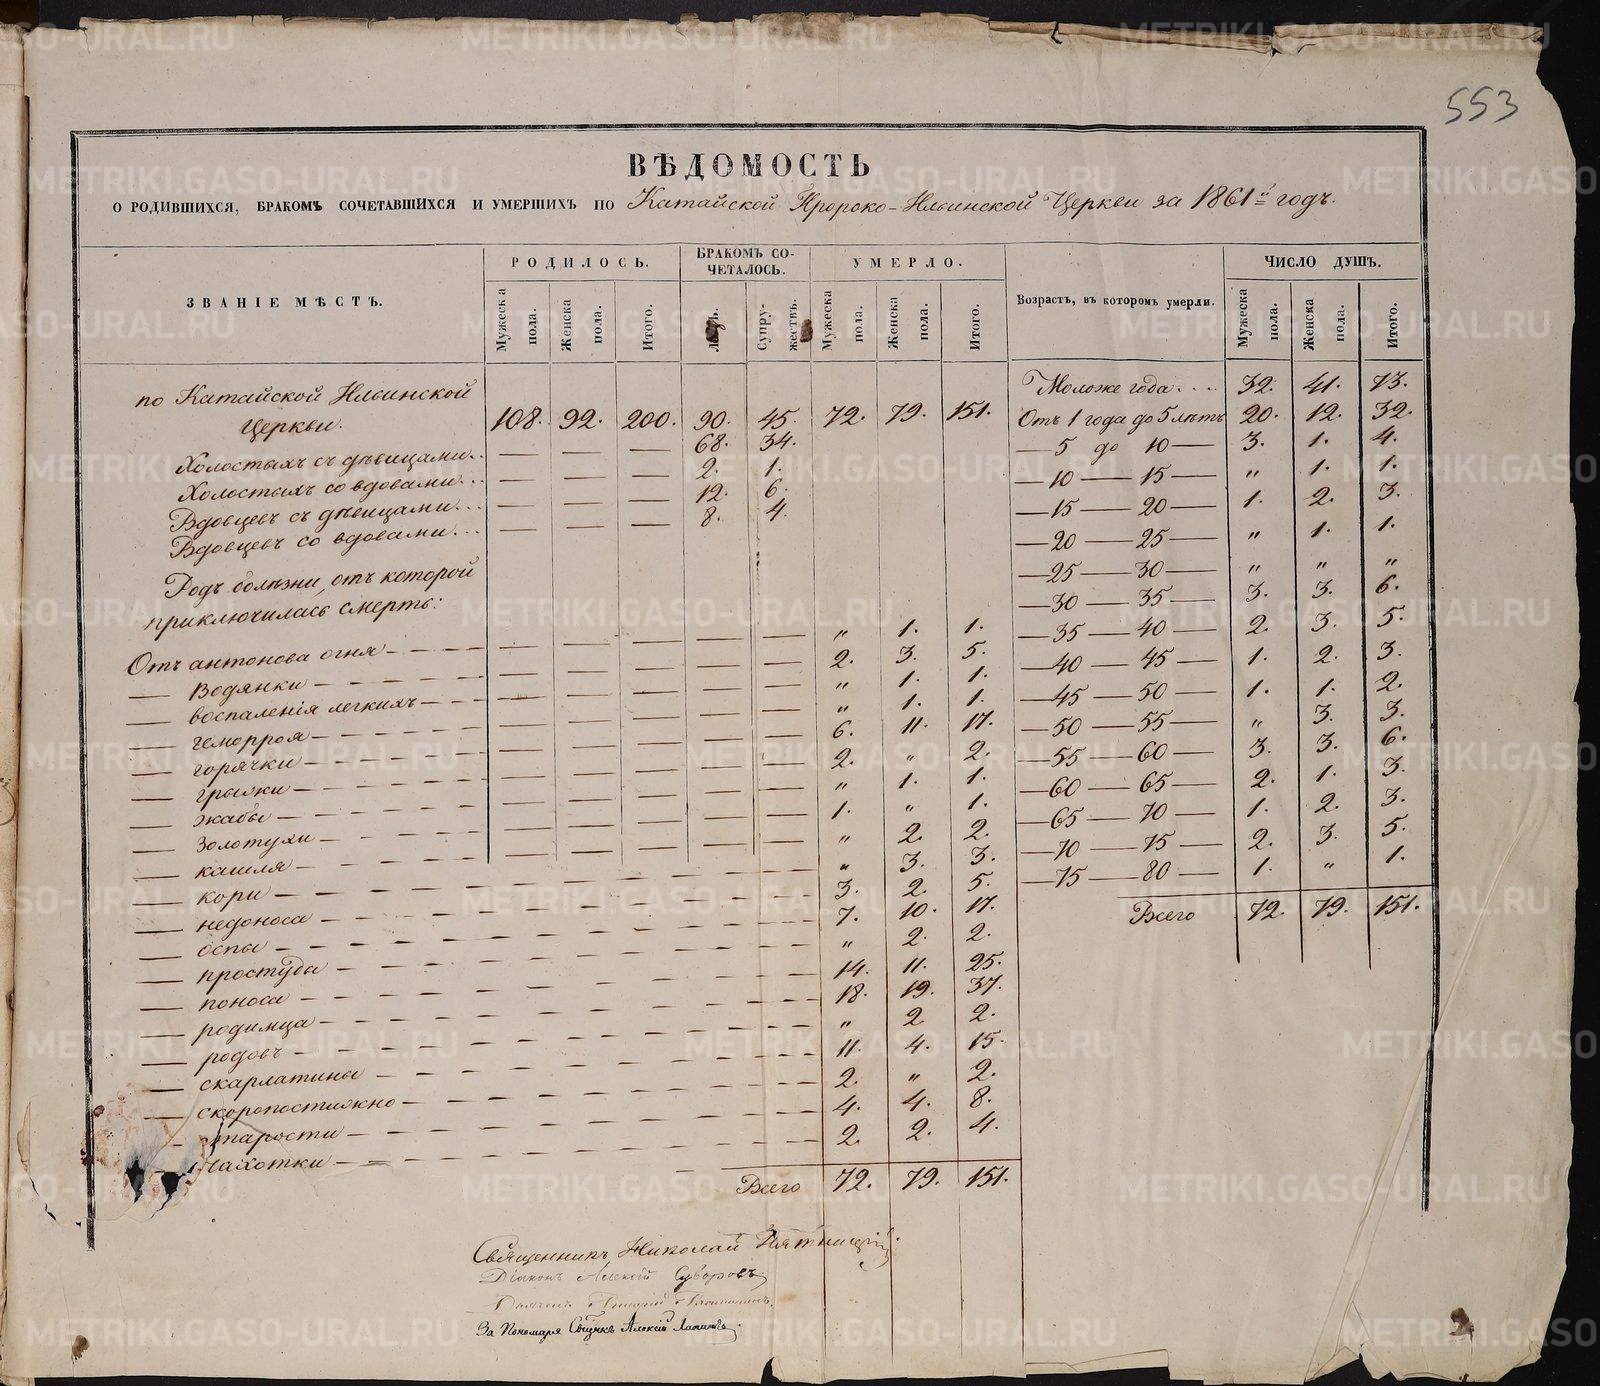 553
ВѢДОМОСТЬ
О РОДИВШИХСЯ, БРАКОМЪ СОЧЕТАВШИХСЯ И УМЕРШИХЪ ПО Катайской Пророко-Ильинской Церкви за 1861й годъ.
ЗВАНІЕ МѢСТЪ. РОДИЛОСЬ. БРАКОМЪ СО-ЧЕТАЛОСЬ. УМЕРЛО. Возрастъ, въ которомъ умерли. ЧИСЛО ДУШЪ.
Мужеска пола. Женска пола. Итого. Супру-жествъ. Мужеска пола. Женска пола. Итого. Мужеска пола. Женска пола. Итого.
по Катайской Ильинской
Церкви. 108. 92. 200. 90. 45. 72. 79. 151.
Холостыхъ съ дѣвицами... — — — 68. 34.
Холостыхъ со вдовами... — — — 2. 1.
Вдовцевъ съ дѣвицами... — — — 12. 6.
Вдовцевъ со вдовами... — — — 8. 4.
Родъ болѣзни, отъ которой
приключилась смерть:
Отъ антонова огня — — — — — — „ 1. 1.
— водянки — — — — — — 2. 3. 5.
— воспаленія легкихъ — — — — — „ 1. 1.
— геморроя — — — — — — „ 1. 1.
— горячки — — — — — — 6. 11. 17.
— грыжи — — — — — — 2. „ 2.
— жабы — — — — — — „ 1. 1.
— золотухи — — — — — — 1. „ 1.
— кашля — — — — — — „ 2. 2.
— кори — — — — — — „ 3. 3.
— недоноса — — — — — — 3. 2. 5.
— оспы — — — — — — 7. 10. 17.
— простуды — — — — — — „ 2. 2.
— поноса — — — — — — 14. 11. 25.
— родимца — — — — — — 18. 19. 37.
— родовъ — — — — — — „ 2 2.
— скарлатины — — — — — — 11. 4. 15.
— скоропостижно — — — — — — 2. „ 2.
— старости — — — — — — 4. 4. 8.
— чахотки — — — — — — 2. 2. 4.
Всего 72. 79. 151.
Моложе года.... 32. 41. 73.
Отъ 1 года до 5 лѣтъ 20. 12. 32.
— 5 до 10 — 3. 1. 4.
— 10 — 15 — „ 1. 1.
— 15 — 20 — 1. 2. 3.
— 20 — 25 — „ 1. 1.
— 25 — 30 — „ „ „
— 30 — 35 — 3. 3. 6.
— 35 — 40 — 2. 3. 5.
— 40 — 45 — 1. 2. 3.
— 45 — 50 — 1. 1. 2.
— 50 — 55 — „ 3. 3.
— 55 — 60 — 3. 3. 6.
— 60 — 65 — 2. 1. 3.
— 65 — 70 — 1. 2. 3.
— 70 — 75 — 2. 3. 5.
— 75 — 80 — 1. „ 1.
Всего 72. 79. 151.
Священникъ Николай Пятницкій
Діаконъ Алексій Суворовъ
За Пономаря Алексій
METRIKI.GASO-URAL.RU